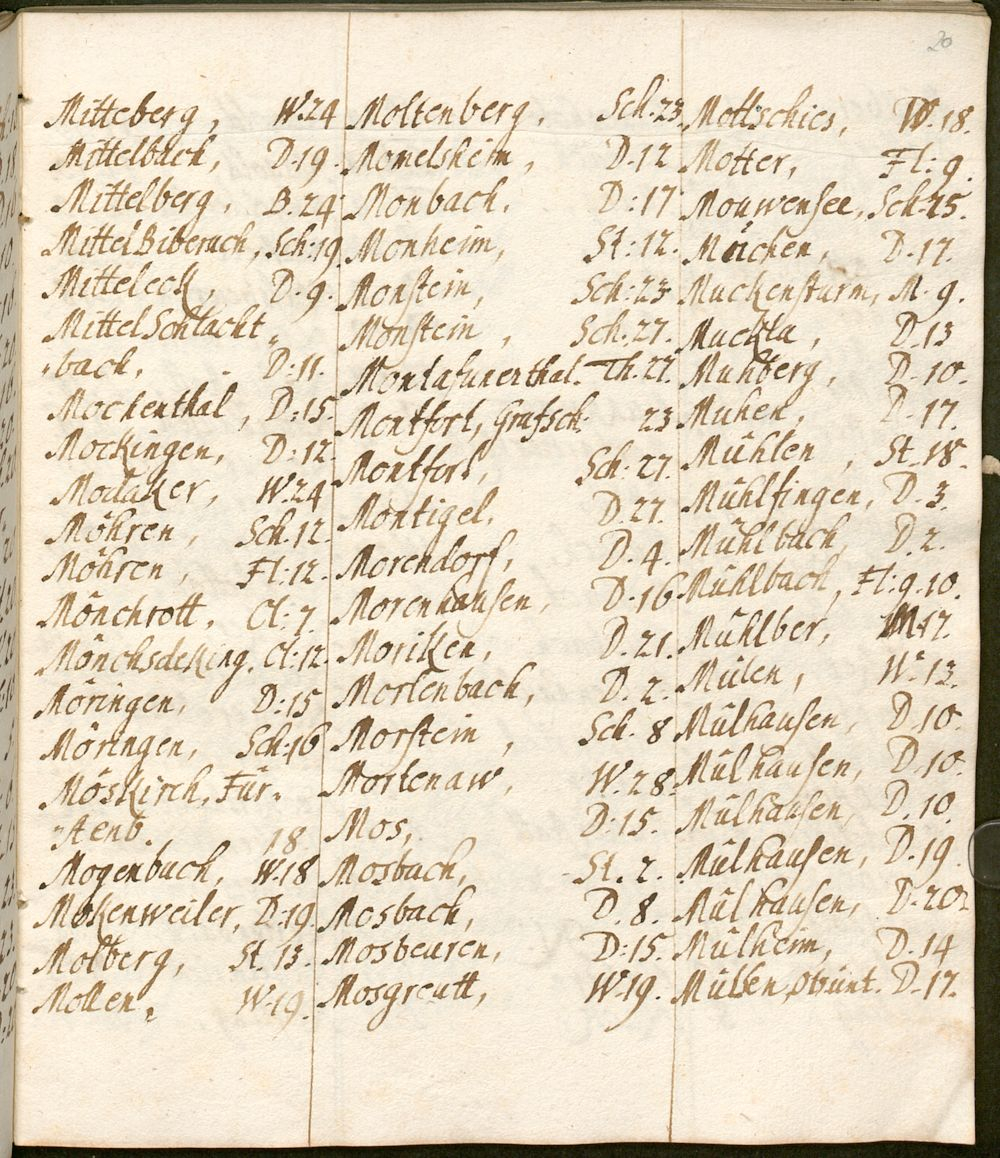 20
Mitteberg, W. 24
Mittelbach, D. 19.
Mittelberg, B. 24
Mittel Biberach, Sch: 19.
Mitteleck, D. 9.
Mittel Schlacht
bach, D: 11.
Mockenthal, D: 15.
Mockingen, D: 12
Modaker, W. 24
Möhren, Sch. 12.
Möhren, Fl: 12.
Mönchrott. Cl: 7.
Mönchsdeking. Cl: 12.
Möringen, D: 15
Möringen, Sch: 16
Möskirch, Für.
stenb. 18.
Mogenbuch, W. 18
Mokenweiler, D: 19.
Molberg, St. 13.
Mollen, W. 19.
Moltenberg, Sch: 23.
Momelsheim, D: 12
Monbach, D: 17
Monheim, St: 12.
Monstein, Sch: 23
Monstein, Sch. 27.
Montafunerthal. Th. 27.
Montfort, Grafsch: 23
Montfort, Sch: 27.
Montigel, D. 27.
Morendorf, D. 4.
Morenhausen, D. 16
Moriken, D. 21.
Morlenbach, D. 2.
Morstein, Sch. 8
Mortenaw, W. 28.
Mos, D: 15.
Mosbach, St. 2.
Mosbach, D. 8.
Mosbeuren, D: 15.
Mosgreutt, W. 19.
Mottschies, W. 18.
Motter, Fl: 9.
Mouwensee, Sch: 25.
Muchen, D. 17.
Muckensturm, M. 9.
Muckla, D. 13
Muhberg, D. 10.
Muhen, D. 17.
Mühlen, St. 18.
Mühlfingen, D. 3.
Mühlbach, D. 2.
Mühlbach, Fl: 9. 10.
Mühlber, M. 17.
Mülen, W. 13.
Mülhausen, D. 10.
Mülhausen, D. 10.
Mülhausen, D. 10.
Mülhausen, D. 19.
Mülhausen, D. 20
Mülheim, D. 14
D. 17.